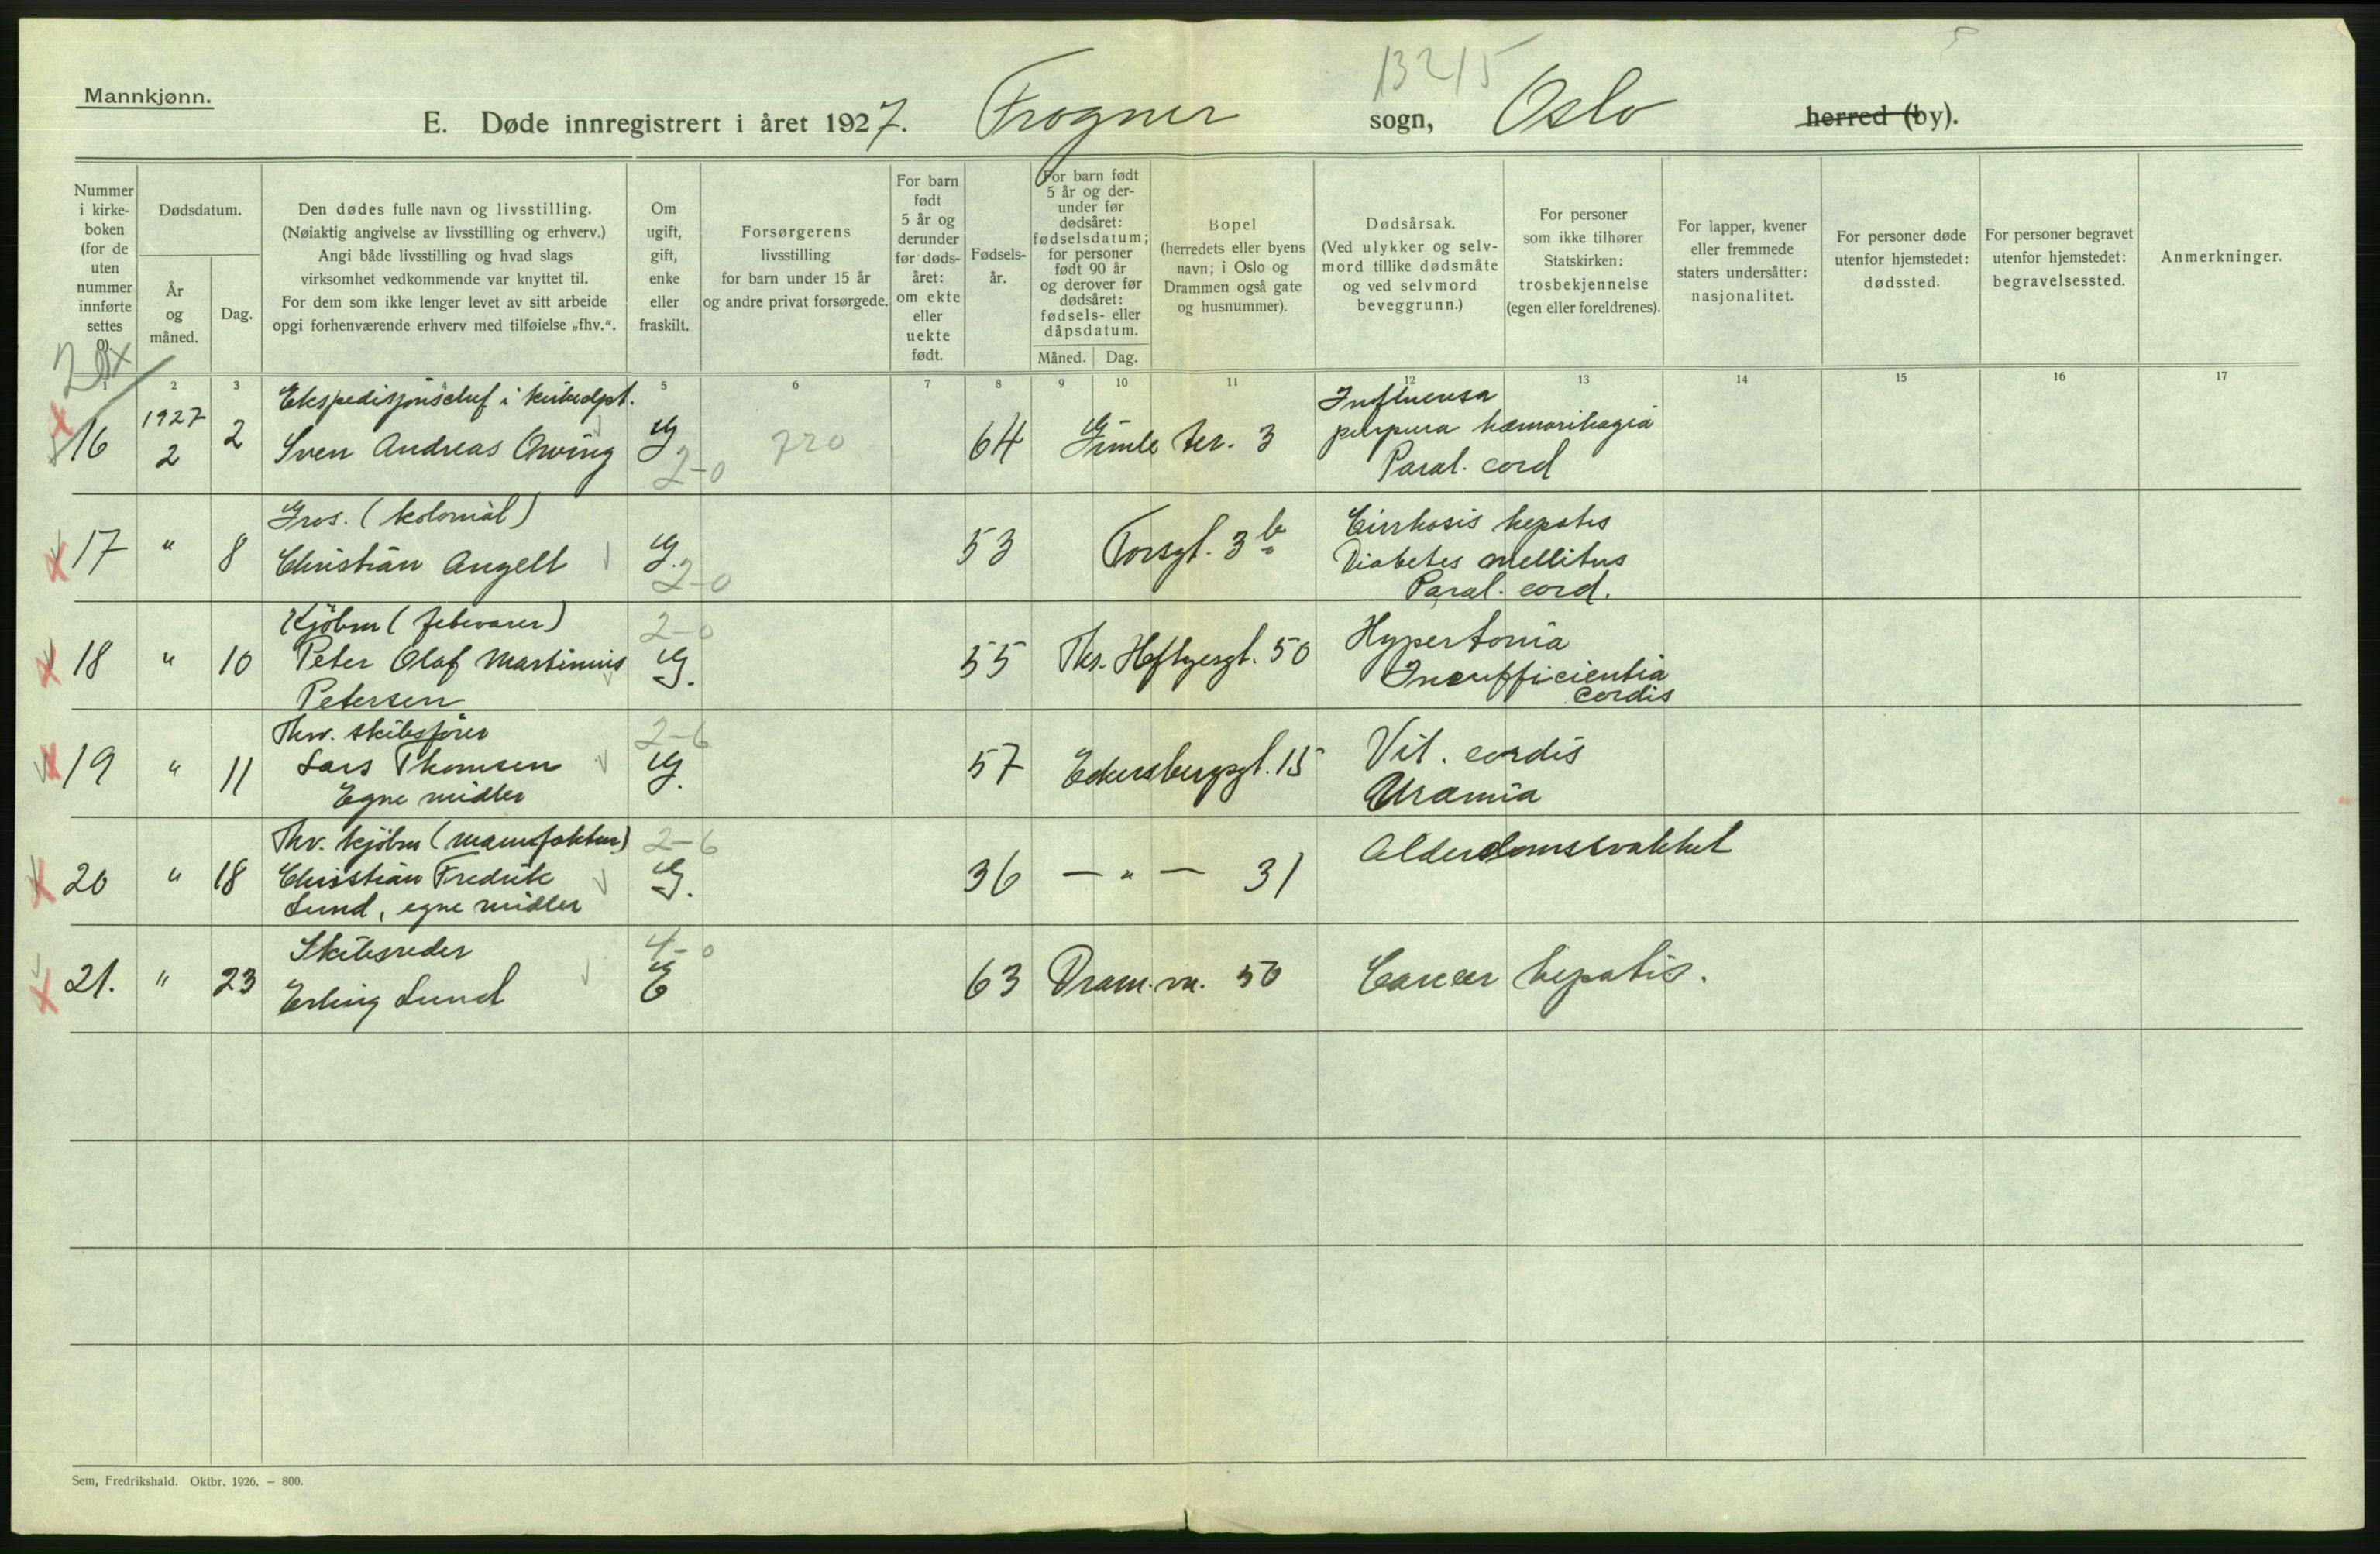 13215
Mannkjønn.
E. Døde innregistrert i året 1927. Frogner sogn, Oslo herred (by).
Nummer i kirke- boken (for de uten nummer innførte settes 0).
Dødsdatum.
År og måned.
Dag.
Den dødes fulle navn og livsstilling.
(Nøiaktig angivelse av livsstilling og erhverv.)
Angi både livsstilling og hvad slags
virksomhet vedkommende var knyttet til.
For dem som ikke lenger levet av sitt arbeide
opgi forhenværende erhverv med tilføielse „fhv.“.
Om ugift, gift, enke eller fraskilt.
Forsørgerens
livsstilling
for barn under 15 år
og andre privat forsørgede.
For barn født 5 år og derunder før døds- året: om ekte eller uekte født.
Fødsels- år.
For barn født 5 år og der- under før dødsåret: fødselsdatum; for personer født 90 år og derover før dødsåret: fødsels- eller dåpsdatum.
Måned. Dag.
Bopel
(herredets eller byens
navn; i Oslo og
Drammen også gate
og husnummer).
Dødsårsak.
(Ved ulykker og selv-
mord tillike dødsmåte
og ved selvmord
beveggrunn.)
For personer
som ikke tilhører
Statskirken:
trosbekjennelse
(egen eller foreldrenes).
For lapper, kvener
eller fremmede
staters undersåtter:
nasjonalitet.
For personer døde
utenfor hjemstedet:
dødssted.
For personer begravet
utenfor hjemstedet:
begravelsessted.
Anmerkninger.
1 2 3 4 5 6 7 8 9 10 11 12 13 14 15 16 17
Ekspedisjonschef i kirkedpt. Influensa
16 1927 2 2 Sven Andreas Qwing G 2-0 720 64 Gimle ter. 3 purpura hæmorrhagia
Paral. cord
Gros. (kolonial) Cirrhosis hepatis
17 " 8 Christian Angell G. 2-0 53 Torsgt. 3b Diabetes mellitus
Paral. cord.
Kjøbm (fetevarer) 2-0 Hypertonia
18 " 10 Peter Olaf Martinius G. 55 Ths. Heftyesgt. 50 Insufficientia
Petersen cordis
Fhv. skibsfører 2-6 Vit. cordis
19 " 11 Lars Thomsen G. 57 Eckersbergsgt. 15
Egne midler Uræmia
Fhv. kjøbm (manufaktur) 2-6 Alderdomssvakhet
20 " 18 Christian Fredrik G. 36 — " — 31
Lund, egne midler
Skibsreder 4-0
21. " 23 Erling Lund E 63 Dram.vn. 50 Cancer hepatis.
Sem, Fredrikshald. Oktbr. 1926. — 800.